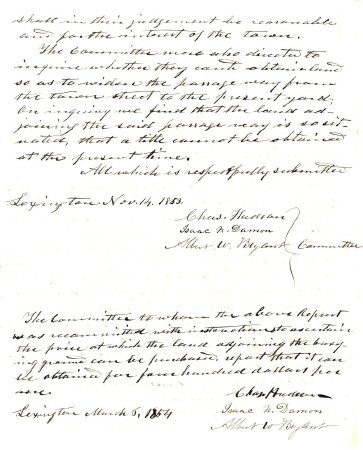 shall in their judgement be reasonable
and for the interest of the town.
The Committee were also directed to
inquire whether they can't obtain land
so as to widen the passage way from
the town street to the present yard.
On inquiry we find that the land ad-
joining the said passage way is so sit-
uated, that a title cannot be obtained
at the present time.
All which is respectfully submitted
Lexington Nov. 14. 1853
Chas. Hudson
Isaac N. Damon
Albert W. Bryant
Committee
The Committee to whom the above Report
was recommitted with instructions to ascertain
the price at which the land adjoining the bury-
ing ground can be purchase, report that it can
be obtained for four hundred dollars per
acre.
Chas Hudson
Lexington March 6, 1854
Isaac N. Damon
Albert W Bryant